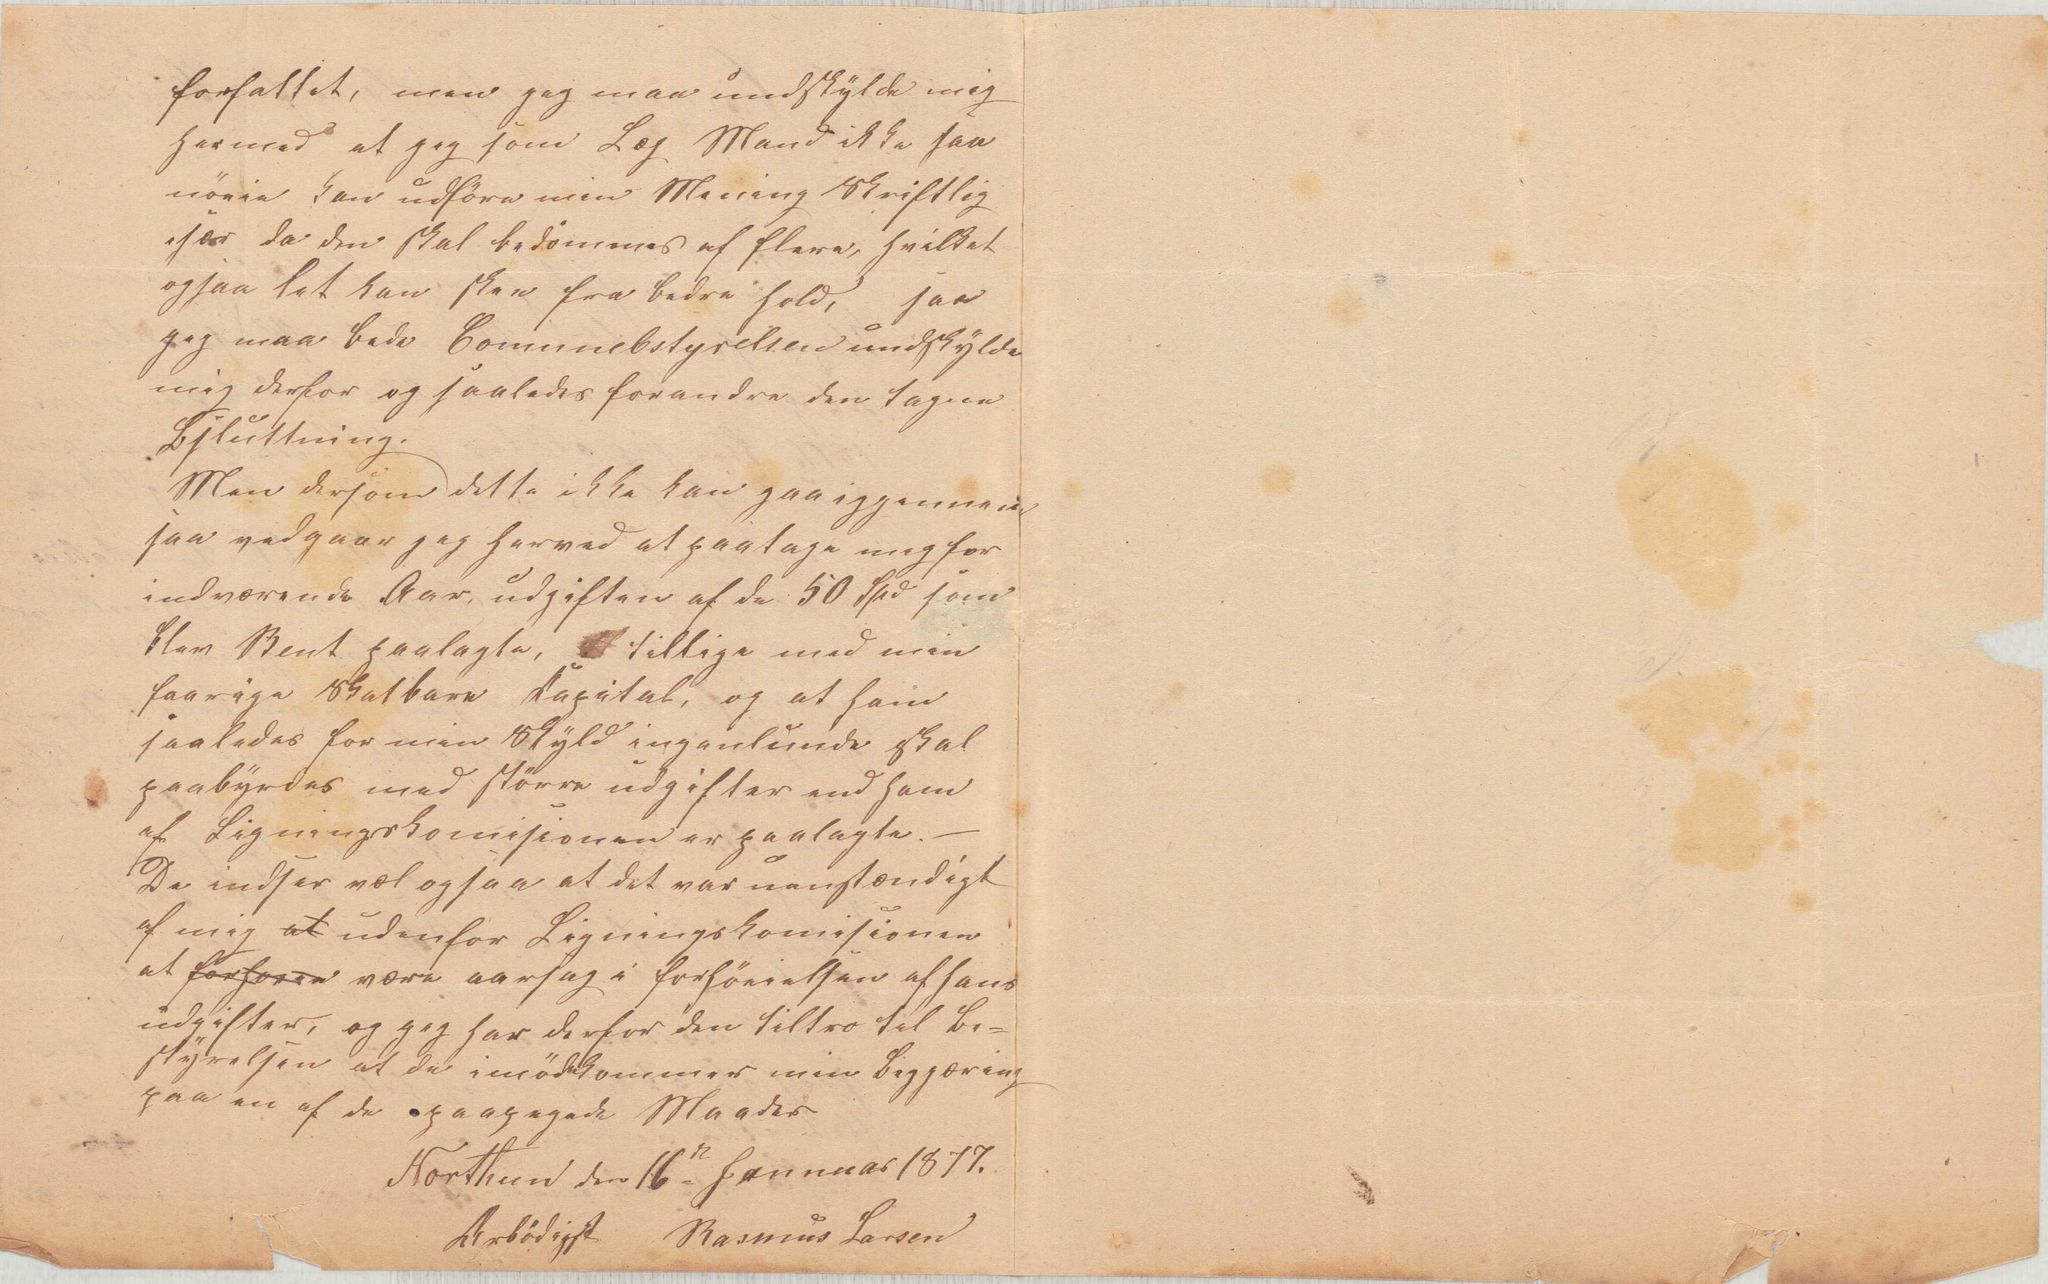 forfattet, men jeg maa undskylde mig
hermed at jeg som Læg Mand ikke saa
nöeie kan udföre min Mening Skriftlig
især da den skal bedömmes af flere, hvilket
ogsaa let kan skee fra bedre hold, saa
jeg maa bede Comunebstyrelsen undskylde
mig derfor og saaledes forandre den tagne
Bsluttning.
Men dersom dette ikke kan gaa iggennem
saa vedgaar jeg herved at paatage mig for
indværende Aar, udgiften af de 50 Spd som
blev Bent paalagte, tillige med min
faarige Skatbare Kapital, og at ham
saaledes for min Skyld ingenlunde skal
paabyrdes med större udgifter end ham
af Ligningskomisionen er paalagte. —
De indser vel ogsaa at det var uanstændigt
af mig at udenfor Ligningskomisionen
at være aarsag i forhöeielsen af hans
udgifter, og jeg har derfor den tiltro til Be=
styrelsen at de imödekommer min Beggæring
paa en af de paapegede Maader
Northun den 16n Jannuar 1877.
Ærbödigst Rasmus Larsen